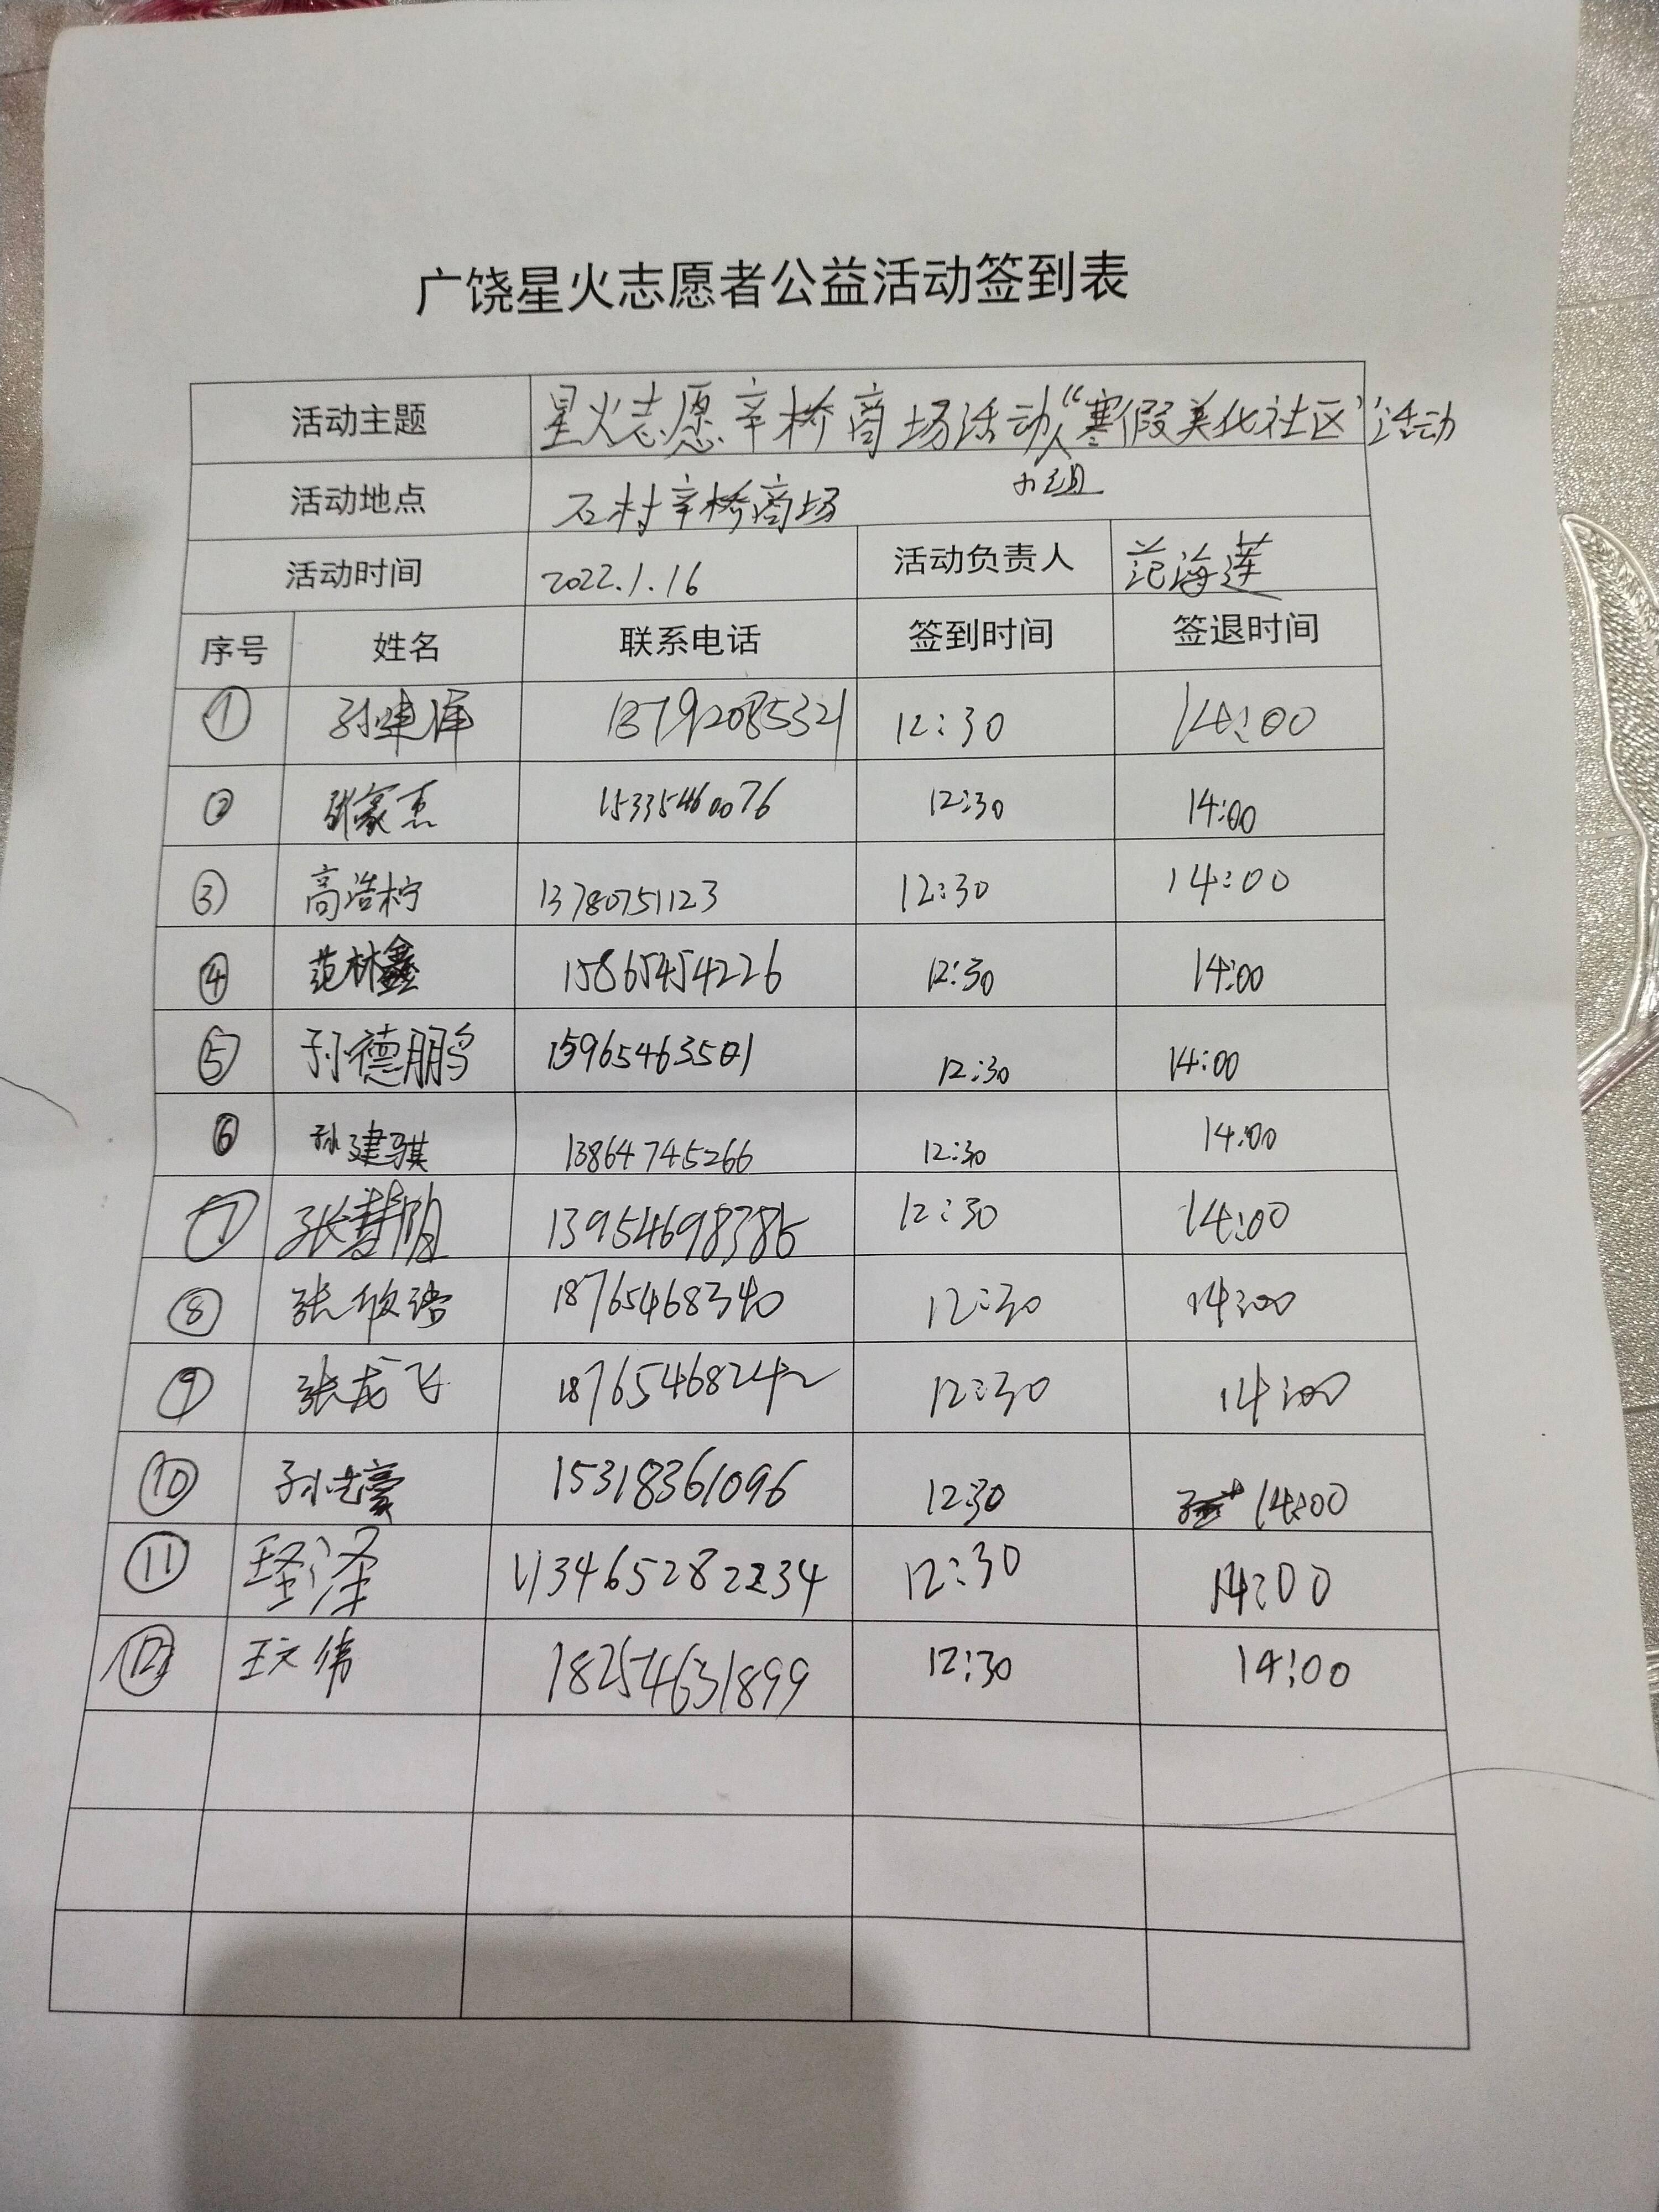 广饶星火志愿者公益活动签到表
活动主题 星火志愿辛桥商场活动小组“寒假美化社区”活动
活动地点 石村辛桥商场
活动时间 2022.1.16 活动负责人 范海莲
序号 姓名 联系电话 签到时间 签退时间
① 13792085321 12:30 14:00
② 张家杰 15335460076 12:30 14:00
③ 高浩柠 13780751123 12:30 14:00
④ 范林鑫 15865454226 12:30 14:00
⑤ 孙德鹏 15965463501 12:30 14:00
⑥ 孙建骐 13864745266 12:30 14:00
⑦ 12:30 14:00
⑧ 18765468340 12:30 14:00
⑨ 张龙飞 12:30 14:00
⑩ 15318361096 12:30 14:00
⑪ 12:30 14:00
⑫ 王文伟 18254631899 12:30 14:00